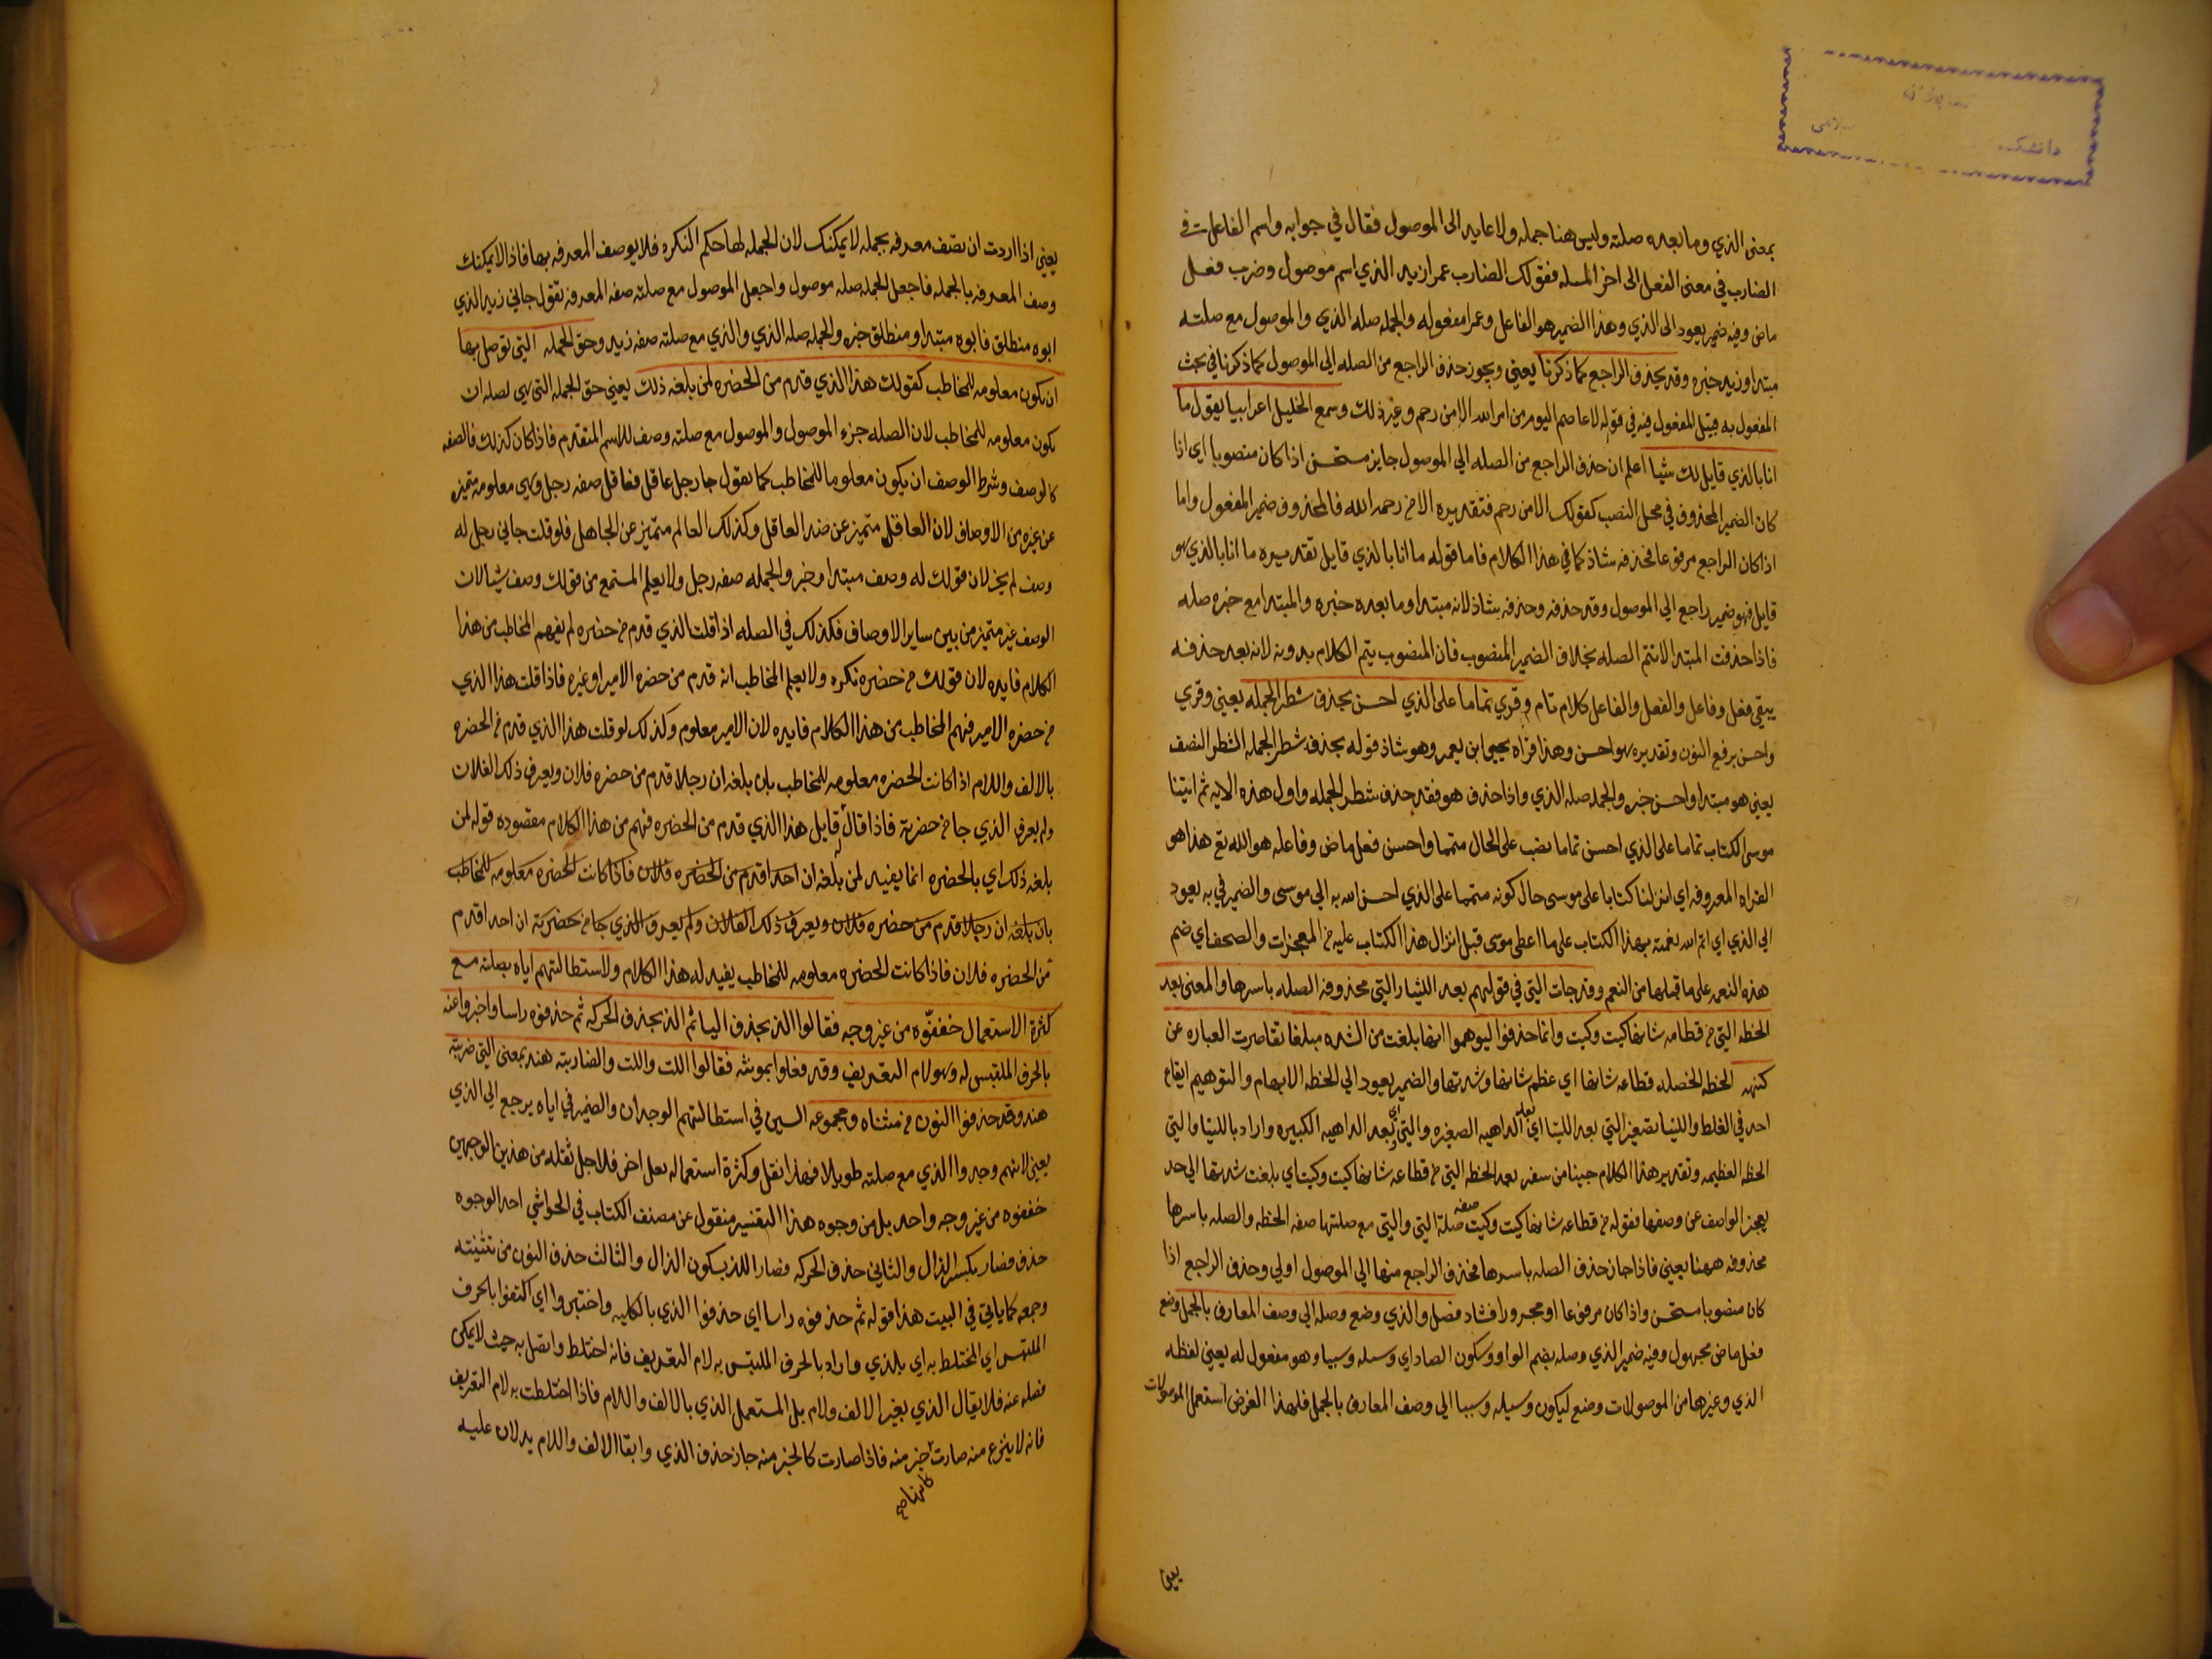 بمعنى الذي وما بعده صلته وليس هنا جمله ولا عايد الى الموصول فقال في جوابه واسم الفاعل في
الضارب في معنى الفعل الى اخر المسله فقولك الضارب عمرا زيد الذي اسم موصول وضرب فعل
ماض وفيه ضمير يعود الى الذي وهذا الضمير هو الفاعل وعمرا مفعوله والجمله صله الذي والموصول مع صلته
مبتدا وزيد خبره وقد يحذف الراجع كما ذكرنا يعني ويجوز حذف الراجع من الصله الى الموصول كما ذكرنا في بحث
المفعول به قبيل المفعول فيه في قوله لا عاصم اليوم من امر الله الا من رحم وغير ذلك وسمع الخليل اعرابيا يقول ما
انا بالذي قايل لك شيا اعلم ان حذف الراجع من الصله الي الموصول جايز مستحسن اذا كان منصوبا اي اذا
كان الضمير المحذوف في محل النصب كقولك الا من رحم فتقديره الا من رحمه الله فالمحذوف ضمير المفعول واما
اذا كان الراجع مرفوعا فحذفه شاذ كما في هذا الكلام فاما قوله ما انا بالذي قايل تقديره ما انا بالذي هو
قايل فهو ضمير راجع الي الموصول وقد حذفه وحذفه شاذ لانه مبتدا وما بعده خبره والمبتدا مع خبره صله
فاذا حذفت المبتدا لا تتم الصله بخلاف الضمير المنصوب فان المنصوب يتم الكلام بدونه لانه بعد حذفه
يبقي فعل وفاعل والفعل والفاعل كلام تام وقري تماما على الذي احسن بحذف شطر الجمله يعني وقري
واحسن برفع النون وتقديره هو احسن وهذا قراه يحيى ابن يعمر وهو شاذ قوله بحذف شطر الجمله الشطر النصف
يعني هو مبتدا واحسن خبره والجمله صله الذي واذا حذف هو فقد حذف شطر الجمله واول هذه الايه ثم اتينا
موسى الكتاب تماما على الذي احسن تماما نصب على الحال متمما واحسن فعل ماض وفاعله هو الله تع هذا هو
القراه المعروفه اي انزلنا كتابا على موسى حال كونه متمما على الذي احسن الله به الي موسى والضمير في به يعود
الي الذي اي اتم الله نعمته بهذا الكتاب على ما اعطى موسى قبل انزال هذا الكتاب عليه من المعجزات والصحف اي ضم
هذه النعمه على ما قبلها من النعم وقد جات التي في قولهم بعد اللتيا والتي محذوفه الصله باسرها والمعنى بعد
الخطه التي من قطامه شانها كيت وكيت وانما حذفوا ليوهموا انها بلغت من الشده مبلغا تقاصرت العباره عن
كنهه الخطه الخصله قطاعه شانها اي عظم شانها وشدتها والضمير يعود الي الخطه الابهام والتوهيم ايقاع
احد في الغلط واللتيا تصغير التي بعد اللتيا اي بعد الداهيه الصغيره والتي اي بعد الداهيه الكبيره واراد باللتيا والتي
الخطه العظيمه وتقدير هذا الكلام جينا من سفر بعد الخطه التي من قطاعه شانها كيت وكيت اي بلغت شدتها الي حد
يعجز الواصف عن وصفها فقوله من قطاعه شانها كيت وكيت صفه صلة التي والتي مع صلتها صفه الخطه والصله باسرها
محذوفه ههنا يعني فاذا جاز حذف الصله باسرها فحذف الراجع منها الي الموصول اولي وحذف الراجع اذا
كان منصوبا مستحسن واذا كان مرفوعا او مجرورا فشاذ فصل والذي وضع وصله الي وصف المعارف بالجمل وضع
فعل ماض مجهول وفيه ضمير الذي وصله بضم الواو وسكون الصاد اي وسيله وسببا وهو مفعول له يعني لفظه
الذي وغيرها من الموصولات وضع ليكون وسيله وسببا الي وصف المعارف بالجمل فلهذا الغرض استعمل الموصولات
يعني
يعني اذا اردت ان تصف معرفه بجمله لا يمكنك لان الجمله لها حكم النكره فلا يوصف المعرفه بها فاذا لا يمكنك
وصف المعرفه بالجمله فاجعل الجمله صله موصول واجعل الموصول مع صلته صفه المعرفه تقول جاني زيد الذي
ابوه منطلق فابوه مبتدا ومنطلق خبره والجمله صله الذي والذي مع صلته صفه زيد وحق الجمله التي توصل بها
ان تكون معلومه للمخاطب كقولك هذا الذي قدم من الحضره لمن بلغه ذلك يعني حق الجمله التي هي لصله ان
تكون معلومه للمخاطب لان الصله جزء الموصول والموصول مع صلته وصف للاسم المتقدم فاذا كان كذلك فالصفه
كالوصف وشرط الوصف ان يكون معلوما للمخاطب كما تقول جا رجل عاقل فعاقل صفه رجل وهي معلومه متميزه
عن غيره من الاوصاف لان العاقل متميز عن ضد العاقل وكذلك العالم متميز عن الجاهل فلو قلت جاني رجل له
وصف لم يجز لان قولك له وصف مبتدا وخبر والجمله صفه رجل ولا يعلم المستمع من قولك وصف شيا لان
الوصف غير متميز من بين ساير الاوصاف فكذلك في الصله اذا قلت الذي قدم من حضره لم يفهم المخاطب من هذا
الكلام فايده لان قولك من حضره نكره ولا يعلم المخاطب انه قدم من حضره الامير او غيره فاذا قلت هذا الذي
من حضره الامير فهم المخاطب من هذا الكلام فايده لان الامير معلوم وكذلك لو قلت هذا الذي قدم من الحضره
بالالف واللام اذا كانت الحضره معلومه للمخاطب بان بلغه ان رجلا قدم من حضره فلان ويعرف ذلك الفلان
ولم يعرف الذي جا من حضرته فاذا قال قايل هذا الذي قدم من الحضره فهم من هذا الكلام مقصوده قوله لمن
بلغه ذلك اي بالحضره انما يفيد لمن بلغه ان احدا قدم من الحضره فلان فاذا كانت الحضره معلومه للمخاطب
بان بلغه ان رجلا قدم من حضره فلان ويعرف ذلك الفلان ولم يعرف الذي جا من حضرته ان احدا قدم
من الحضره فلان فاذا كانت الحضره معلومه للمخاطب يفيد له هذا الكلام ولاستطالتهم اياه بصلته مع
كثرة الاستعمال خففوه من غير وجه فقالوا الذ بحذف اليا ثم الذ بحذف الحركه ثم حذفوه راسا واخبروا عنه
بالحرف الملتبس له وهو لام التعريف وقد فعلوا بمونثه فقالوا اللت واللت والضاربته هند بمعنى التي ضربته
هند وقد حذفوا النون من مثناه ومجموعه السين في استطالتهم الوجدان والضمير في اياه يرجع الي الذي
يعني لانهم وجدوا الذي مع صلته طويلا فهذا ثقل وكثرة استعماله ثقل اخر فلاجل ثقله من هذين الوجهين
خففوه من غير وجه واحد بل من وجوه هذا التفسير منقول عن مصنف الكتاب في الحواشي احد الوجوه
حذف فصار بكسر الذال والثاني حذف الحركه فصار اللذ بسكون الذال والثالث حذف النون من تثنيته
وجمعه كما ياتي في البيت هذا قوله ثم حذفوه راسا اي حذفوا الذي بالكليه واختبروا اي اكتفوا بالحرف
الملتبس اي المختلط به اي بالذي واراد بالحرف الملتبس به لام التعريف فانه اختلط واتصل به حيث لا يمكن
فصله عنه فلا يقال الذي بغير الالف ولام بل المستعمل الذي بالالف واللام فاذا اختلطت به لام التعريف
فانه لا ينزع منه صارت خبر منه فاذا صارت كالخبر منه جاز حذف الذي وابقا الالف واللام يدلان عليه
كانها صح